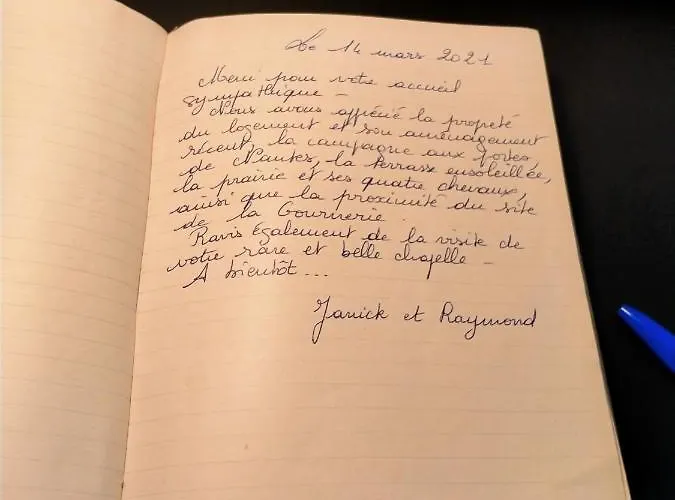 Le 14 mars 2021
Merci pour votre accueil
sympathique -
Nous avons apprécié la propreté
du logement et son aménagement
récent, la campagne aux portes
de Nantes, la terrasse ensoleillée,
la prairie et ses quatre chevaux,
ainsi que la proximité du site
de la Gournerie.
Ravis également de la visite de
votre rare et belle chapelle -
A bientôt...
Janick et Raymond